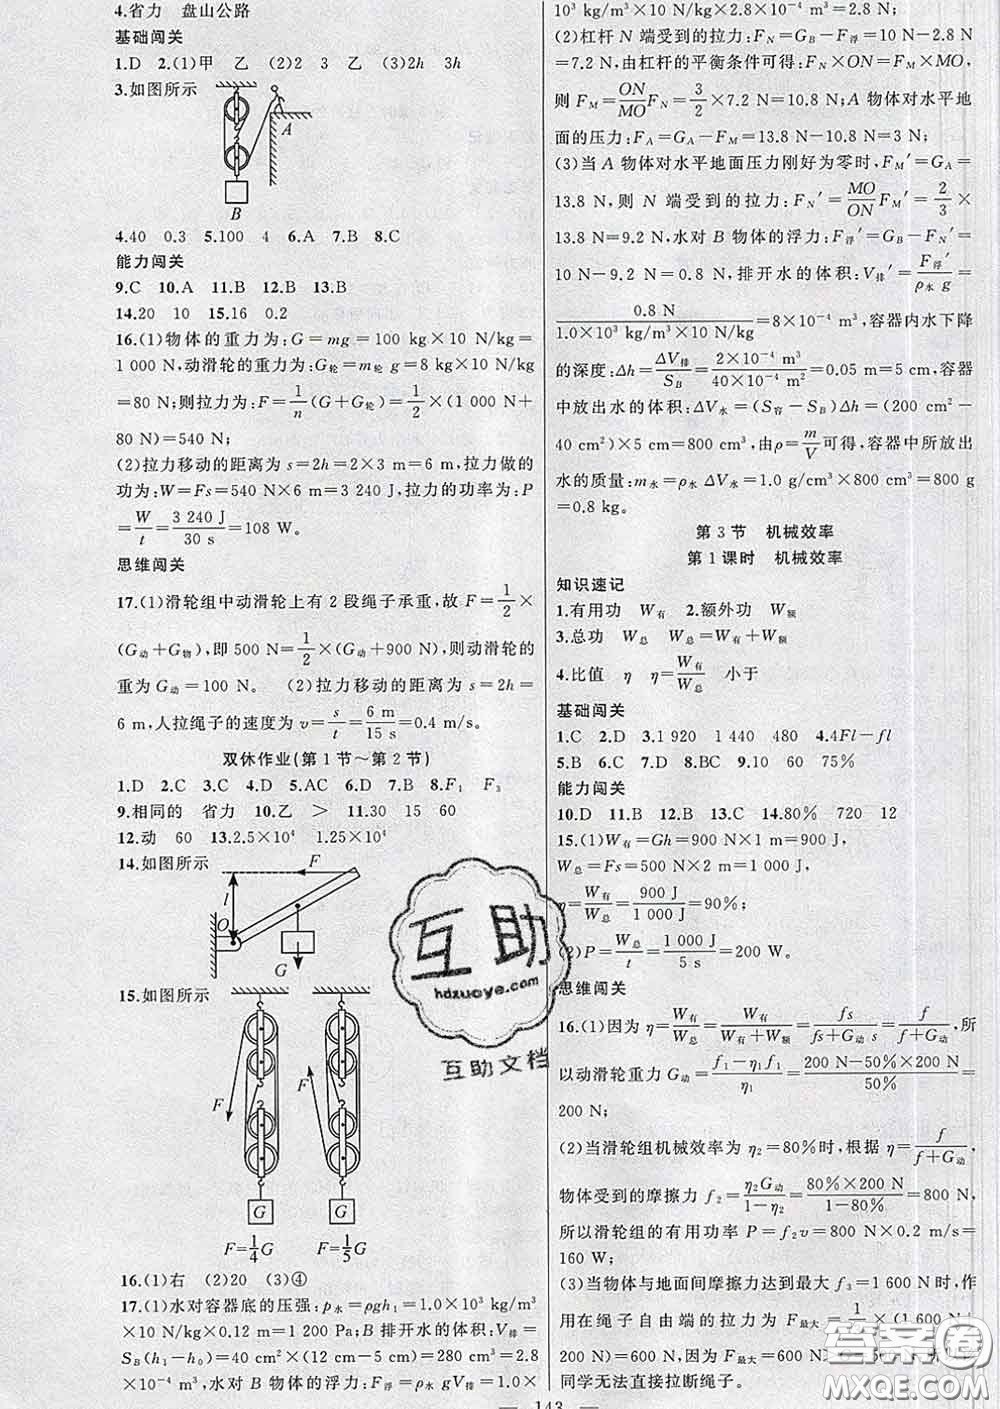 4.省力　盘山公路
基础闯关
1.D　2.(1)甲　乙　(2)2　3　乙　(3)2h　3h
3.如图所示
A
B
4.40　0.3　5.100　4　6.A　7.B　8.C
能力闯关
9.C　10.A　11.B　12.B　13.B
14.20　10　15.16　0.2
16.(1)物体的重力为:G=mg=100 kg×10 N/kg=
1 000 N,动滑轮的重力为:G轮=m轮 g=8 kg×10 N/kg
=80 N;则拉力为:F=1/n(G+G轮)=1/2×(1 000 N+
80 N)=540 N;
(2)拉力移动的距离为 s=2h=2×3 m=6 m,拉力做的
功为:W=Fs=540 N×6 m=3 240 J,拉力的功率为:P
=W/t=3 240 J/30 s=108 W。
思维闯关
17.(1)滑轮组中动滑轮上有 2 段绳子承重,故 F=1/2×
(G动+G物),即 500 N=1/2×(G动+900 N),则动滑轮的
重为 G动=100 N。　(2)拉力移动的距离为 s=2h=
6 m,人拉绳子的速度为 v=s/t=6 m/15 s=0.4 m/s。
双休作业(第 1 节～第 2 节)
1.D　2.C　3.C　4.D　5.AC　6.D　7.B　8.F₁　F₃
9.相同的　省力　10.乙　>　11.30　15　60
12.动　60　13.2.5×10⁴　1.25×10⁴
14.如图所示
F
l
O
G
15.如图所示
F
F
G
G
F=1/4G
F=1/5G
16.(1)右　(2)20　(3)④
17.(1)水对容器底的压强:p水=ρgh₁=1.0×10³ kg/m³
×10 N/kg×0.12 m=1 200 Pa;B 排开水的体积:V排=
S_B(h₁−h₀)=40 cm²×(12 cm−5 cm)=280 cm³=2.8
×10⁻⁴ m³,水对 B 物体的浮力:F浮=ρ水 gV排=1.0×
10³ kg/m³×10 N/kg×2.8×10⁻⁴ m³=2.8 N;
(2)杠杆 N 端受到的拉力:F_N=G_B−F浮=10 N−2.8 N
=7.2 N,由杠杆的平衡条件可得:F_N×ON=F_M×MO,
则 F_M=ON/MO F_N=3/2×7.2 N=10.8 N;A 物体对水平地
面的压力:F_A=G_A−F_M=13.8 N−10.8 N=3 N;
(3)当 A 物体对水平地面压力刚好为零时,F_M′=G_A=
13.8 N,则 N 端受到的拉力:F_N′=MO/ON F_M′=2/3×
13.8 N=9.2 N,水对 B 物体的浮力:F浮′=G_B−F_N′=
10 N−9.2 N=0.8 N,排开水的体积:V排′=F浮′/ρ水 g=
0.8 N/1.0×10³ kg/m³×10 N/kg=8×10⁻⁵ m³,容器内水下降
的深度:Δh=ΔV排/S_B=2×10⁻⁴ m³/40×10⁻⁴ m²=0.05 m=5 cm,容器
中放出水的体积:ΔV水=(S容−S_B)Δh=(200 cm²−
40 cm²)×5 cm=800 cm³,由ρ=m/V可得,容器中所放出
水的质量:m水=ρ水 ΔV水=1.0 g/cm³×800 cm³=800 g
=0.8 kg。
第 3 节　机械效率
第 1 课时　机械效率
知识速记
1.有用功　W有　2.额外功　W额
3.总功　W总　W总=W有+W额
4.比值　η　η=W有/W总　小于
基础闯关
1.C　2.D　3.1 920　1 440　480　4.4Fl−fl
5.B　6.C　7.D　8.BC　9.10　60　75%
能力闯关
10.D　11.B　12.B　13.C　14.80%　720　12
15.(1)W有=Gh=900 N×1 m=900 J,
W总=Fs=500 N×2 m=1 000 J,
η=W有/W总=900 J/1 000 J=90%;
(2)P=W总/t=1 000 J/5 s=200 W。
思维闯关
16.(1)因为 η=W有/W总=W有/W有+W额=fs/fs+G动 s=f/f+G动,所
以动滑轮重力 G动=f₁−η₁f₁/η₁=200 N−50%×200 N/50%=
200 N;
(2)当滑轮组机械效率为 η₂=80%时,根据 η=f/f+G动,
物体受到的摩擦力 f₂=η₂G动/1−η₂=80%×200 N/1−80%=800 N,
所以滑轮组的有用功率 P=f₂v=800 N×0.2 m/s=
160 W;
(3)当物体与地面间摩擦力达到最大 f₃=1 600 N时,作
用在绳子自由端的拉力为 F最大=1/3×(1 600 N+
200 N)=600 N,因为 F最大=600 N
同学无法直接拉断绳子。
143
互助
hdzuoye.com
互助文档
答案圈
MXQE.COM